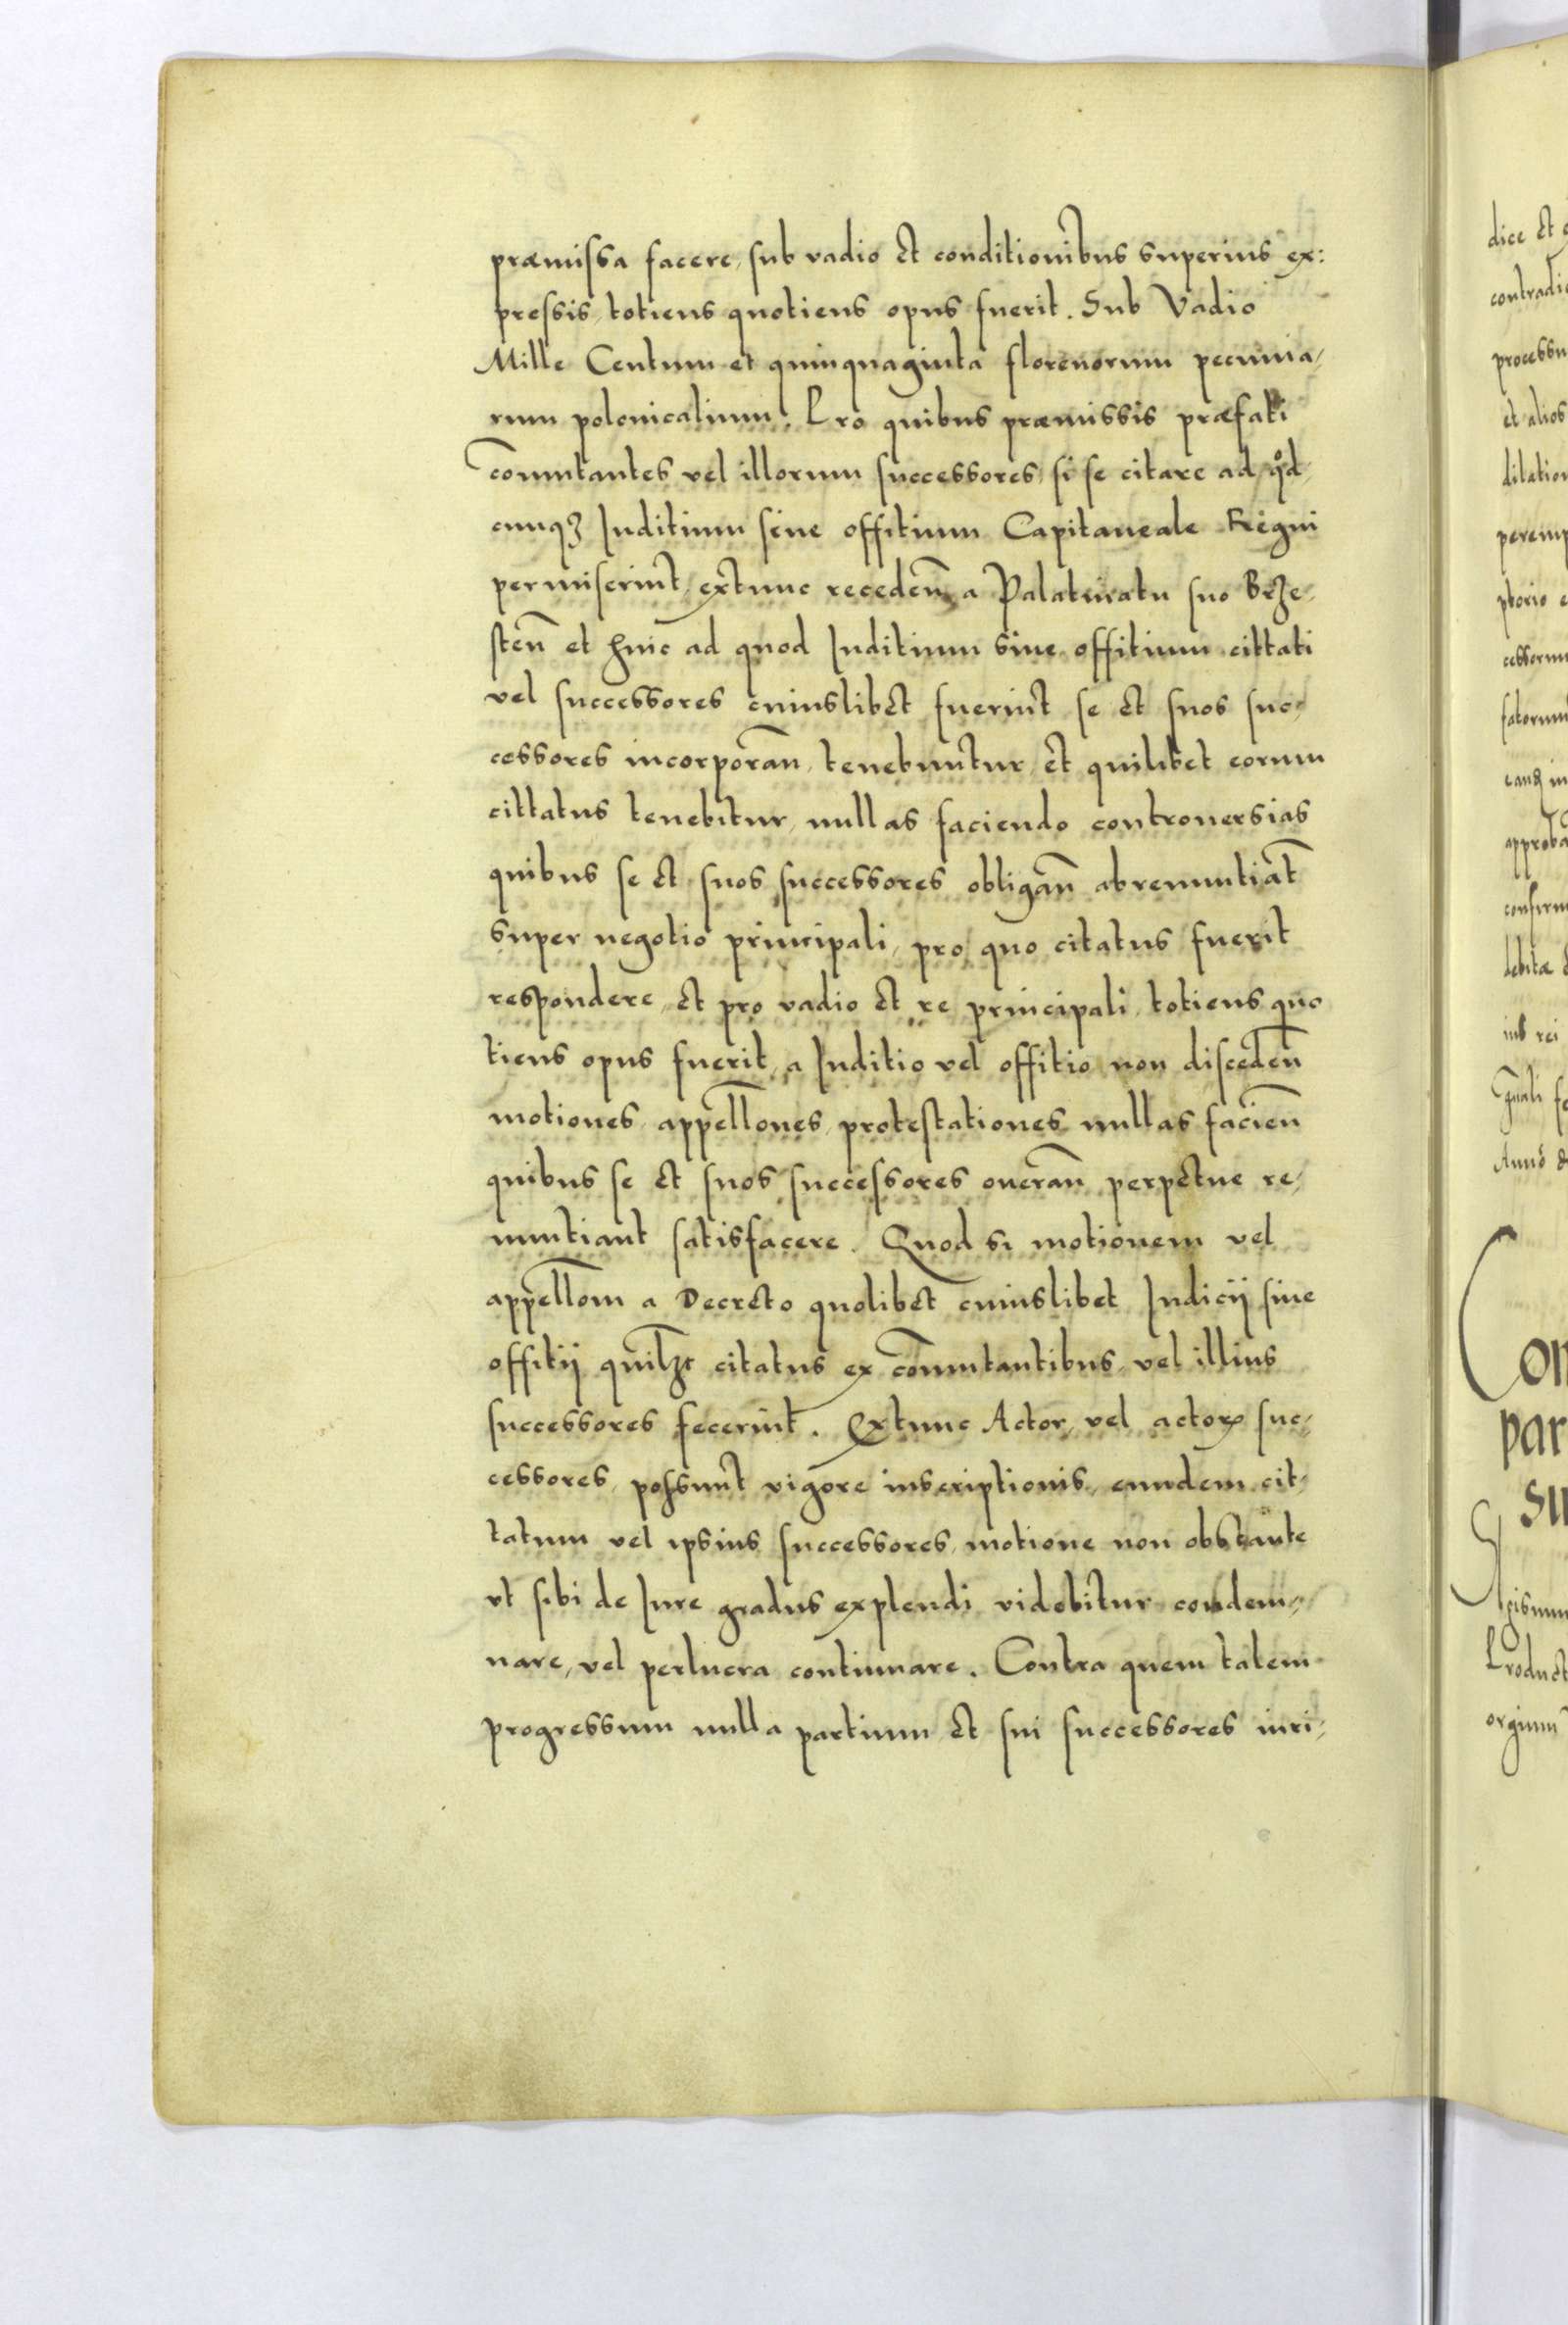 præmissa facere, sub vadio et conditionibus superius ex:
pressis, totiens quotiens opus fuerit. Sub Vadio
Mille Centum et quinquaginta florenorum pecunia-
rum polonicalium. Pro quibus præmissis præfati
com̄utantes vel illorum successores, si se citare ad qͦd
cunqꝫ Iuditium siue offitium Capitaneale Regni
permiserint, extunc recedeñ a Palatinatu suo Brze-
steñ et huic ad quod Iuditium siue offitium cittati
vel successores cuiuslibet fuerint se et suos suc-
cessores incorporañ, tenebuntur, et quilibet eorum
cittatus tenebitur, nullas faciendo controuersias
quibus se et suos successores obligañ abrenuntiat̄
super negotio principali, pro quo citatus fuerit
respondere, et pro vadio et re principali, totiens quo
tiens opus fuerit, a Iuditio vel offitio non discedeñ
motiones, appell̄ones, protestationes nullas facieñ
quibus se et suos successores onerañ perpetue re-
nuntiant satisfacere. Quod si motionem vel
appell̄om a Decreto quolibet cuiuslibet Iudicij siue
offitij quilꝫt citatus ex com̄utantibus, vel illius
successores fecerint. Extunc Actor, vel actorꝝ suc-
cessores, possunt vigore inscriptionis, eundem cit-
tatum vel ipsius successores, motione non obstante
vt sibi de Iure gradus explendi videbitur condem-
nare, vel perlucra continuare. Contra quem talem
progressum nulla partium et sui successores iuri-
dice et
contradi
processu
et alios
dilation
peremp
ptorio e
cessorum
fatorum
approba
confirm
debitæ
ius rei
Anno
Com
par
su
Product